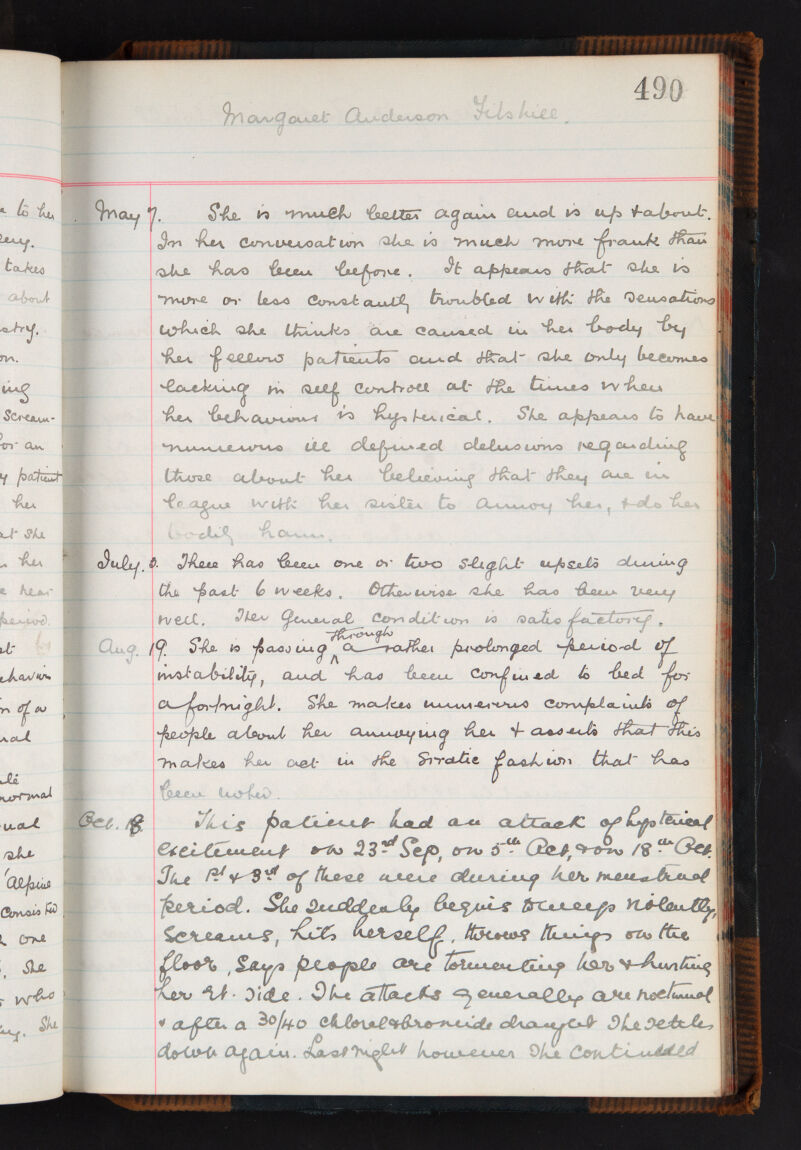 490
Margaret Anderson Filshill.
May 7. She is much better again and is up & about.
In her conversation she is much more frank than
she has been before. It appears that she is
more or less constantly troubled with the sensations
which she thinks are caused in her body by
her fellow patients and that she only becomes
lacking in self controll at the times when
her behaviour is hysterical. She appears to have
numerous ill defined delusions regarding
those about her believing that they are in
league with her sister to annoy her, & do her
bodily harm.
July. There has been one or two slight upsets during
the past 6 weeks. Otherwise she has been very
well. Her General condition is satisfactory.
Aug. 19. She is passing through a rather prolonged period of
instability, and has been confined to bed for
a fortnight. She makes numerous complaints of
people about her annoying her & asserts that this
makes her act in the erratic fashion that has
been noted.
Oct. 18 This patient had an attack of hysterical
excitement on 23rd Sep, on 5th Oct, & on 18th Oct.
The 1st & 3rd of these were during her menstrual
period. She suddenly begins to weep violently,
screams, hits herself, throws things on the
floor, says people are tormenting her & hurting
her Rt. side. The attacks generally are nocturnal
& after a 30/40 chloral & bromide draught she settles
down again. Last night however she continued
to her
takes
about
ing
scream-
for an
patient
her
at she
her
near
period.
st
behaviour
n of a
normal
she
'Alpine
consisted
one
She
who
She